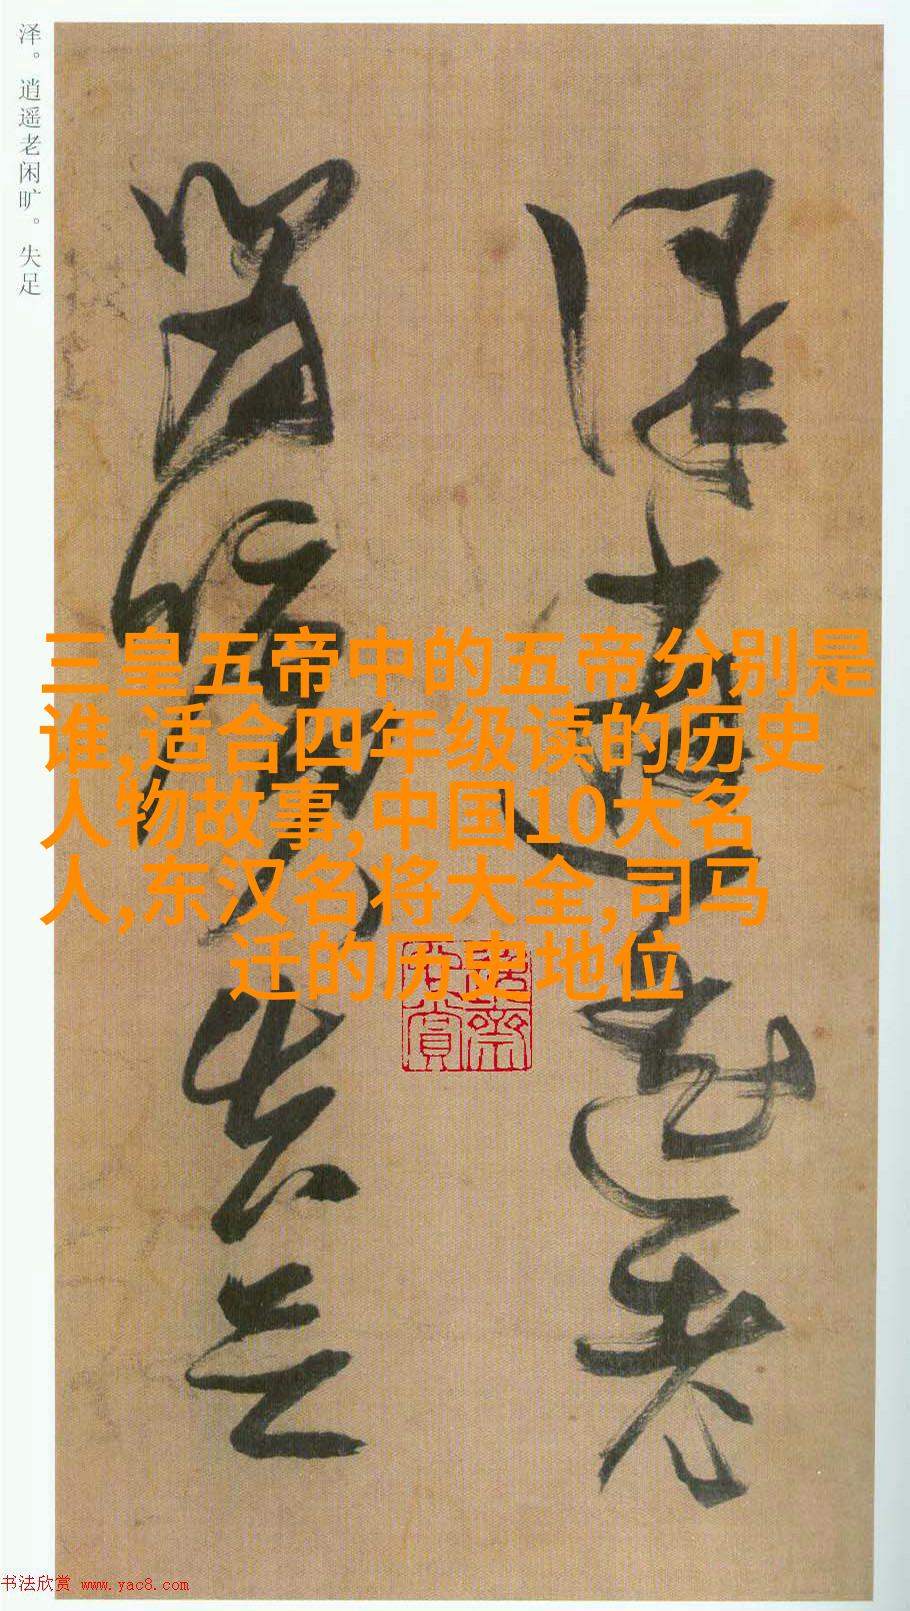 泽。逍遥老闲旷。失足
泽逍遥老
闲旷失足
三皇五帝中的五帝分别是
谁,适合四年级读的历史
人物故事,中国10大名
人,东汉名将大全,司马
迁的历史地位
书法欣赏 www.yac8.com